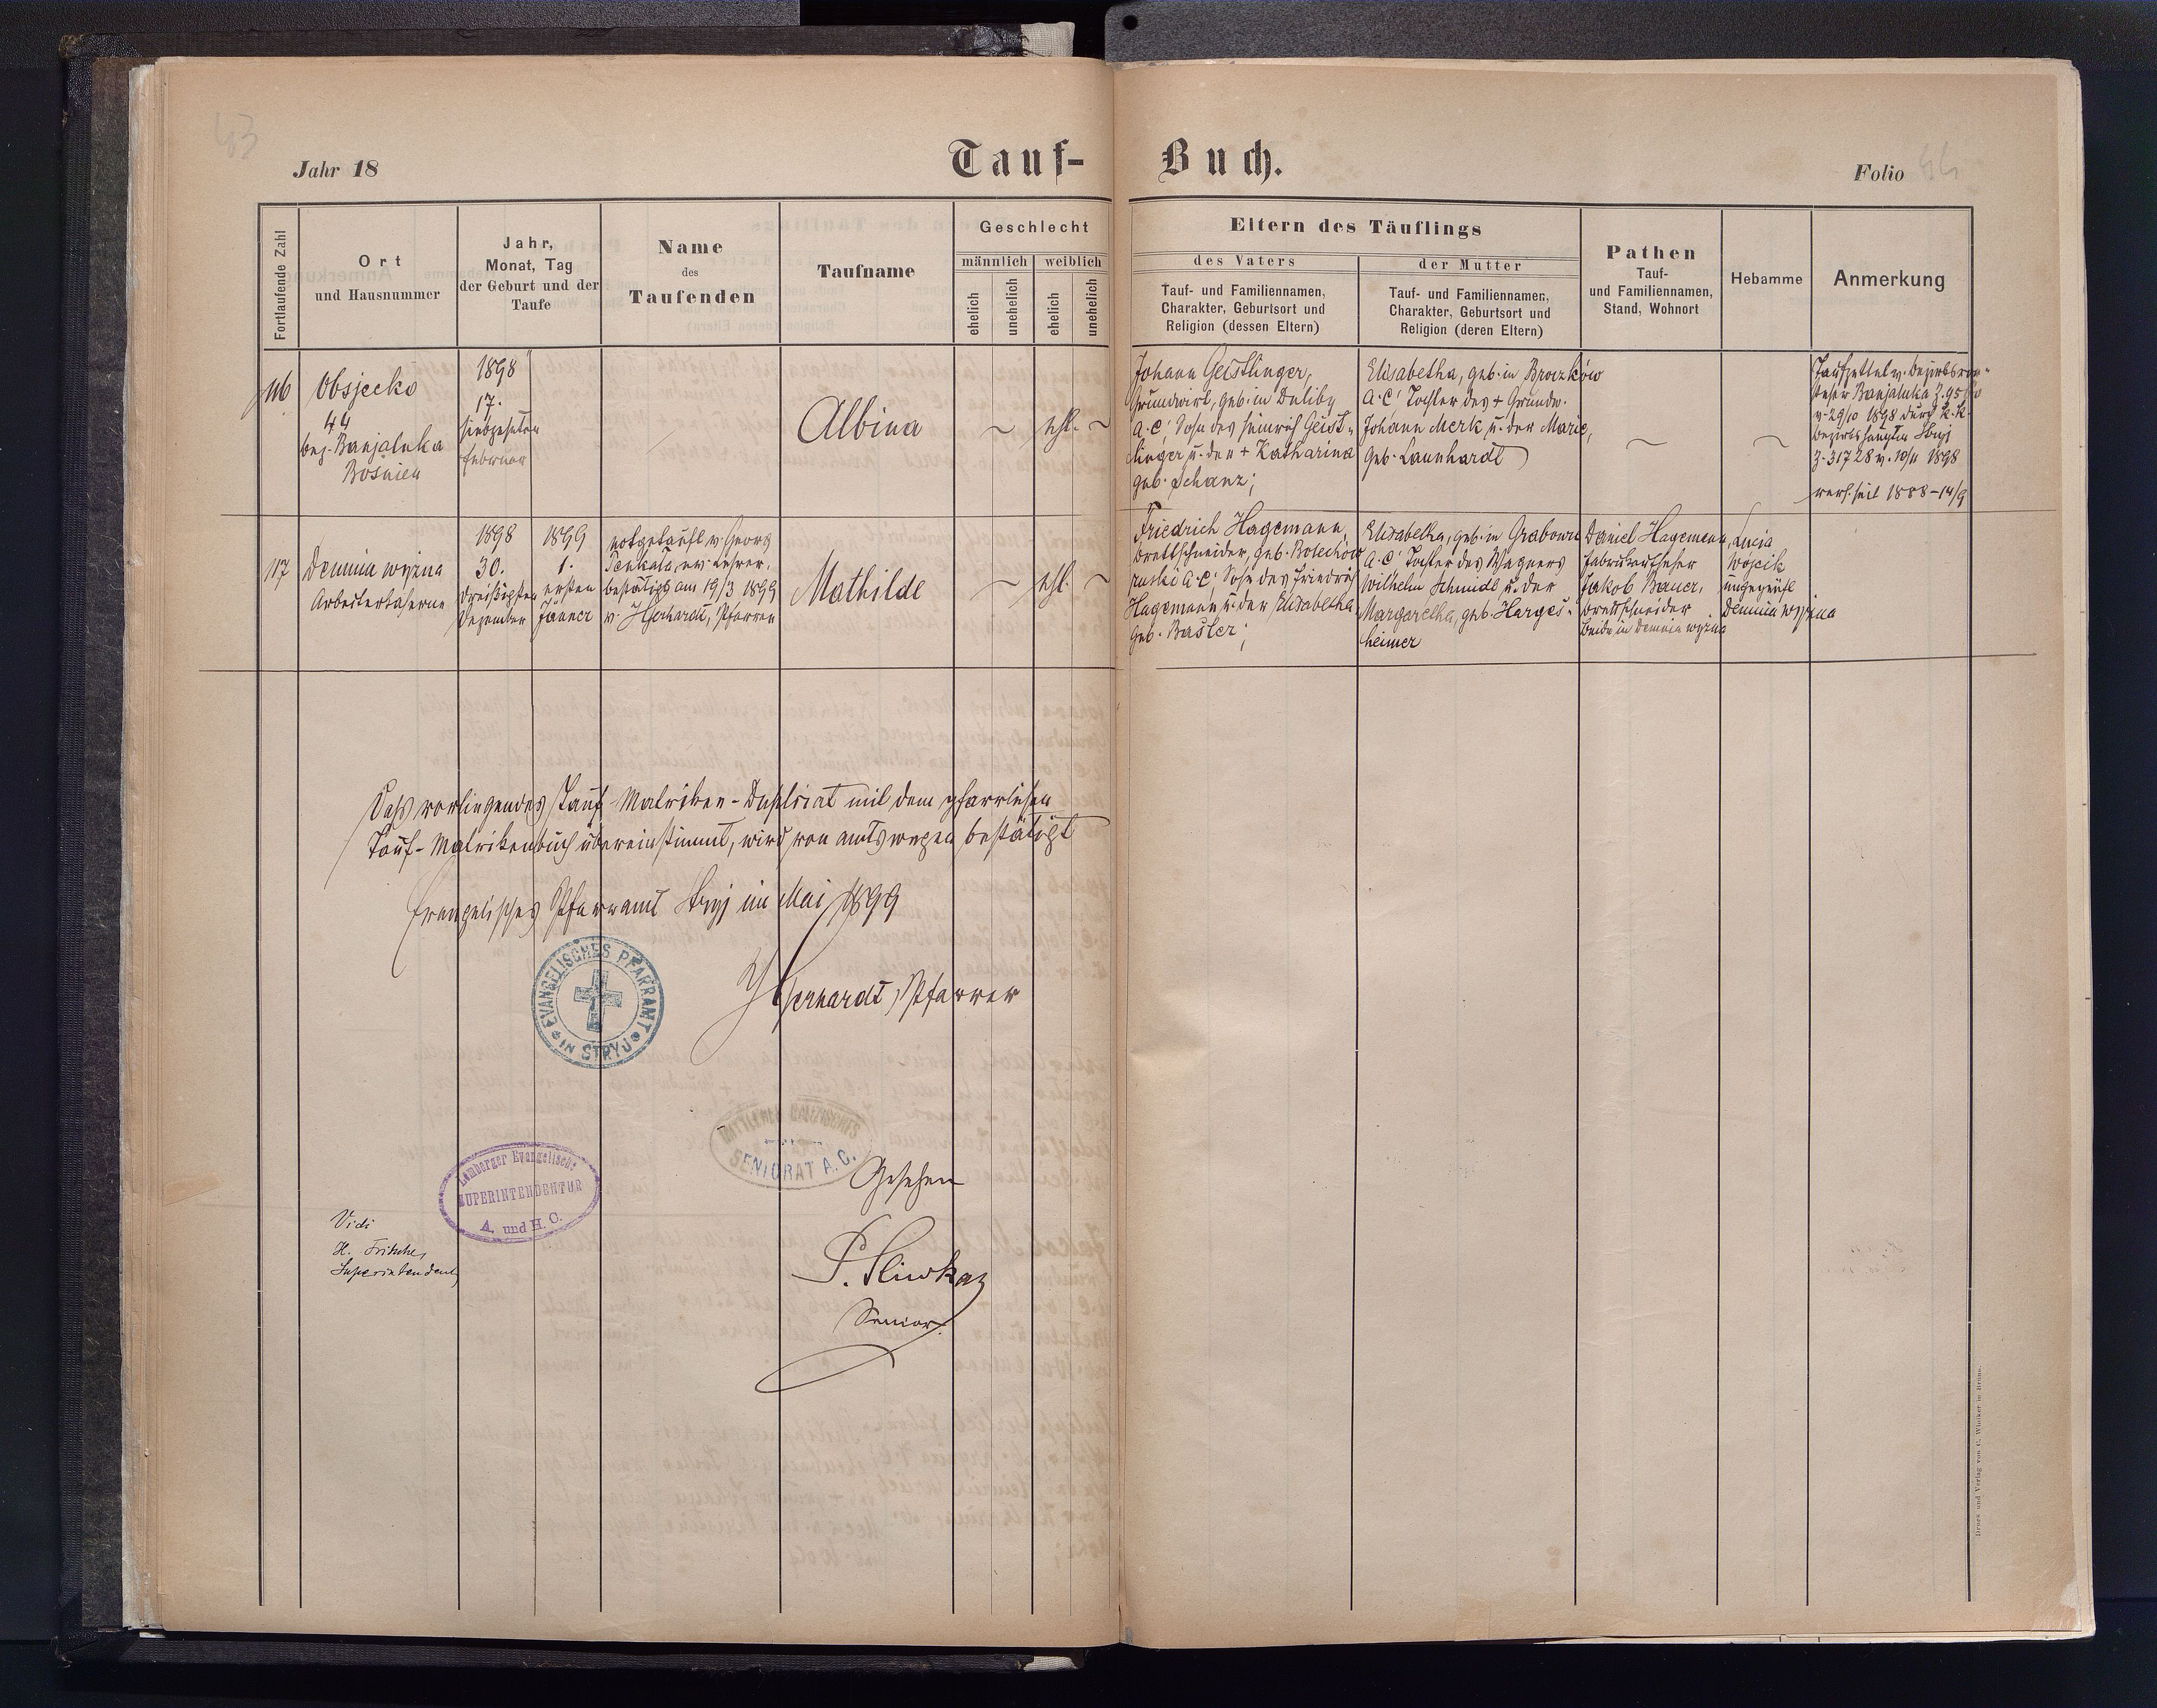 43
Jahr 18
Tauf-
Buch.
Folio 44
Fortlaufende Zahl
Ort
und Hausnummer
Jahr,
Monat, Tag
der Geburt und der
Taufe
Name
des
Taufenden
Taufname
Geschlecht
männlich
weiblich
ehelich
unehelich
ehelich
unehelich
Eltern des Täuflings
des Vaters
Tauf- und Familiennamen,
Charakter, Geburtsort und
Religion (dessen Eltern)
der Mutter
Tauf- und Familiennamen,
Charakter, Geburtsort und
Religion (deren Eltern)
Pathen
Tauf-
und Familiennamen,
Stand, Wohnort
Hebamme
Anmerkung
116
Obsjecko
44
bez. Banjaluka
Bosnien
1898
17.
siebzehnten
Februar
Albina
ehl.
Johann Geistlinger,
Grundwirt, geb. in Duliby
A.C.; Sohn des Heinrich Geist-
linger u. der + Katharina
geb. Schanz;
Elisabetha, geb. in Broczków
A.C.; Tochter des + Grundw.
Johann Merk u. der Marie,
geb. Launhardt
Taufzettel v. Bezirksvor-
steher Banjaluka
v. 29/10 1898 durch k. k.
Stryj
Z. 31728 v. 10/11 1898
1888-14/9
117
Demnia wyzna
Arbeiterkaserne
1898
30.
dreißigsten
Dezember
1899
1.
ersten
Jänner
notgetauft v. Georg
ev. Lehrer.
bestätigt am 19/3 1899
v. Gerhardt, Pfarrer
Mathilde
ehl.
Friedrich Hagemann,
Brettschneider, geb. Bolechow
ruski A.C.; Sohn des Friedrich
Hagemann u. der Elisabetha
geb. Basler;
Elisabetha, geb. in
A.C.; Tochter des Wagners
Wilhelm Schmidt u. der
Margaretha, geb. Harges-
heimer
Daniel Hagemann,
Fabriksaufseher
Jakob Bauer,
Brettschneider
beide in Demnia wyzna
Lucia
Wojcik
ungeprüft
Demnia wyzna
Daß vorliegendes Tauf-Matriken-Duplicat mit dem pfarrlichen
Tauf-Matrikenbuch übereinstimmt, wird von amtswegen bestätigt
Evangelisches Pfarramt Stryj im Mai 1899
EVANGELISCHES PFARRAMT
IN STRYJ
Gerhardt, Pfarrer
MITTLERES GALIZISCHES
SENIORAT A. C.
Gesehen
Lemberger Evangelische
SUPERINTENDENTUR
A. und H. C.
Vidi
H. Fritsche,
Superintendent
P. Sliwka
Senior.
Druck und Verlag von C. Winiker in Brünn.